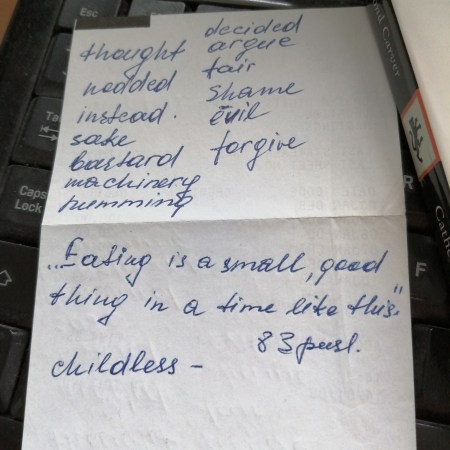 thought
nodded
instead.
sake
bastard
machinery
humming
decided
argue
fair
shame
evil
forgive
„Eating is a small, good
thing in a time like this."
83 pusl.
childless -
Esc
Caps
Lock
R
F
nd Carver
Cathe